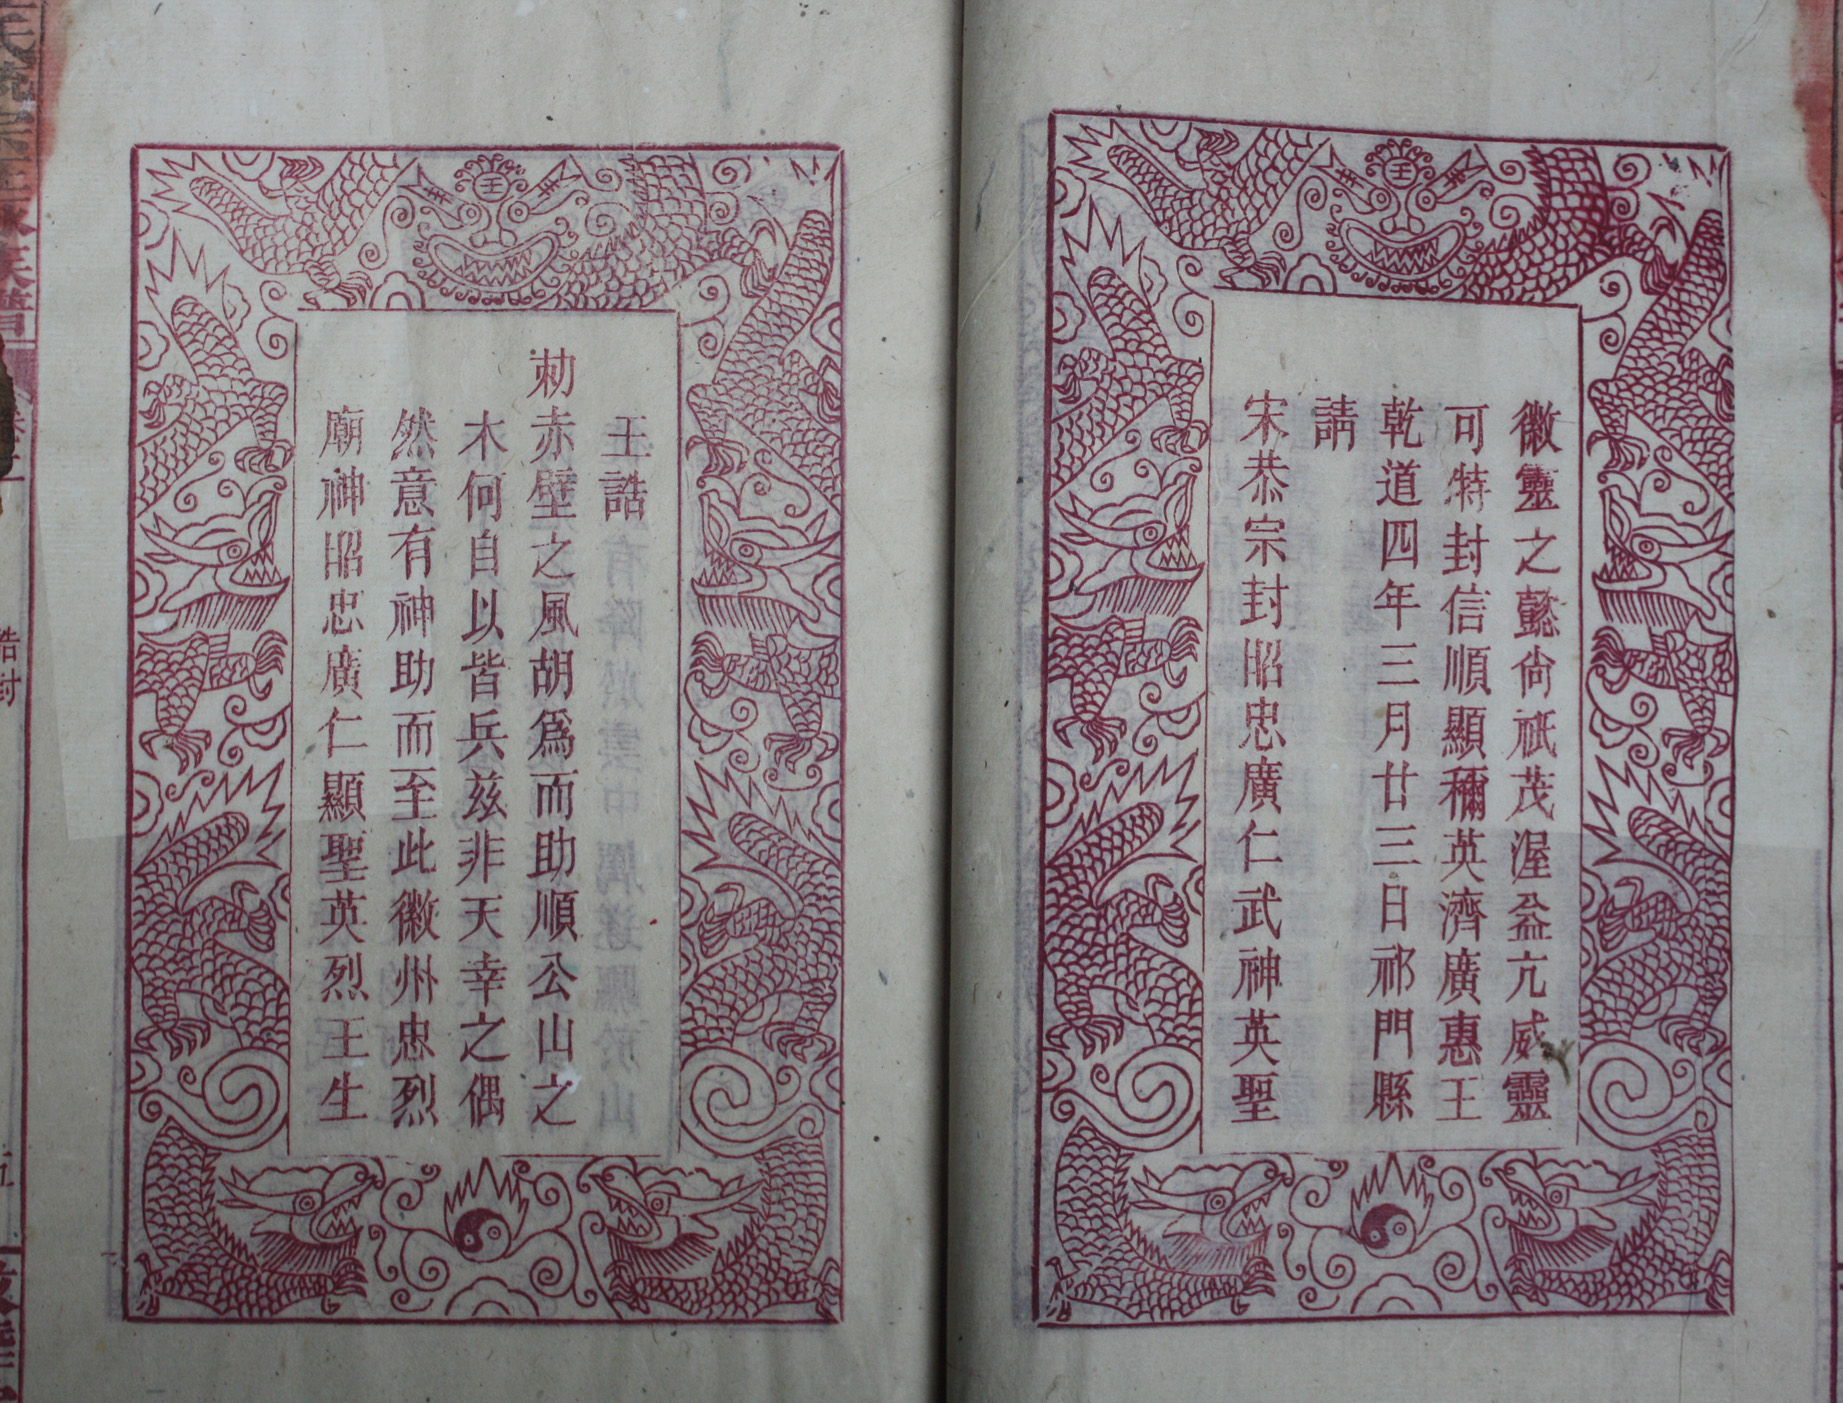 徽靈之懿尚祇茂渥益亢威靈
可特封信順顯穪英濟廣惠王
乾道四年三月廿三日祁門縣
請
宋恭宗封昭忠廣仁武神英聖
王誥
勑赤壁之風胡爲而助順公山之
木何自以皆兵兹非天幸之偶
然意有神助而至此徽州忠烈
廟神昭忠廣仁顯聖英烈王生
誥封